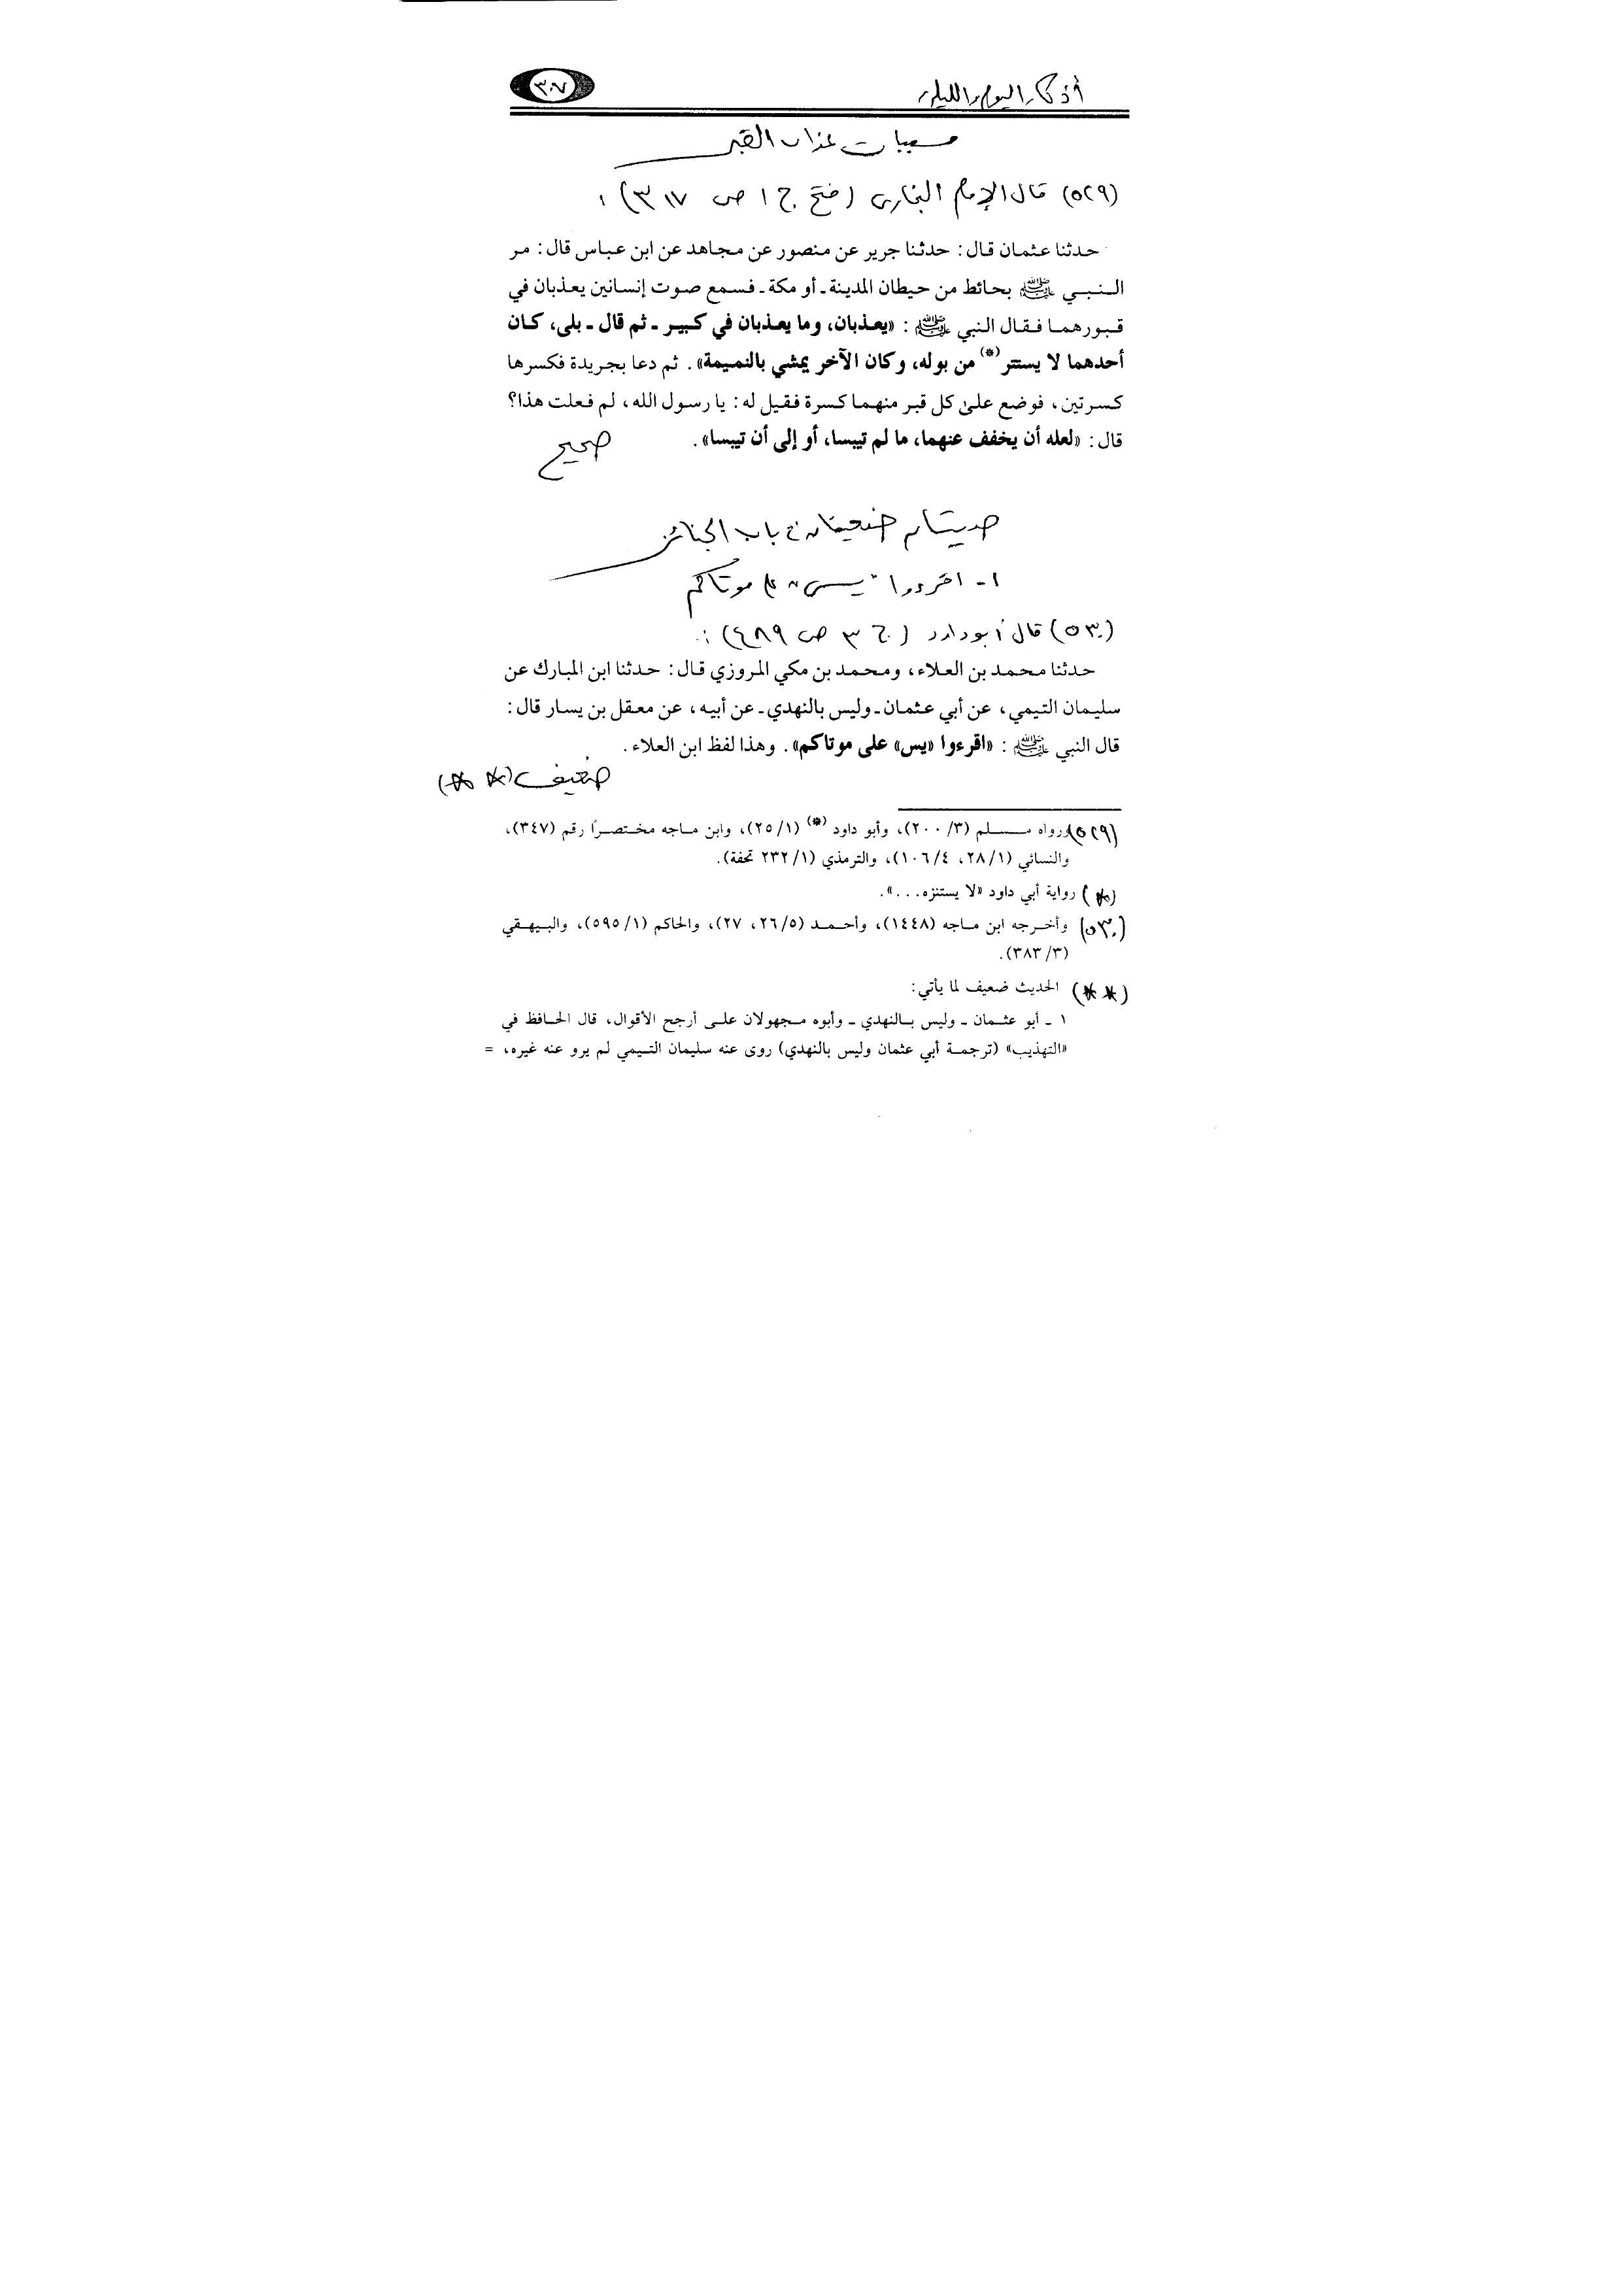 أذكار اليوم والليلة
٣٠٧
مسببات عذاب القبر
(٥٢٩) قال الإمام البخاري (فتح ج ١ ص ٣١٧) :
حدثنا عثمان قال: حدثنا جرير عن منصور عن مجاهد عن ابن عباس قال: مر
النبي ﷺ بحائط من حيطان المدينة ـ أو مكة ـ فسمع صوت إنسانين يعذبان في
قبورهما فقال النبي ﷺ : «يعذبان، وما يعذبان في كبير ـ ثم قال ـ بلى، كان
أحدهما لا يستتر(*) من بوله، وكان الآخر يمشي بالنميمة». ثم دعا بجريدة فكسرها
كسرتين، فوضع على كل قبر منهما كسرة فقيل له: يا رسول الله، لم فعلت هذا؟
قال: «لعله أن يخفف عنهما، ما لم تيبسا، أو إلى أن تيبسا».
صحيح
حديثان ضعيفان في باب الجنائز
١- اقرءوا "يس" على موتاكم
(٥٣٠) قال أبو داود (ج ٣ ص ٤٨٩) :
حدثنا محمد بن العلاء، ومحمد بن مكي المروزي قال: حدثنا ابن المبارك عن
سليمان التيمي، عن أبي عثمان ـ وليس بالنهدي ـ عن أبيه، عن معقل بن يسار قال:
قال النبي ﷺ : «اقرءوا «يس» على موتاكم». وهذا لفظ ابن العلاء.
ضعيف (**)
(٥٢٩) ورواه مسلم (٣/ ٢٠٠)، وأبو داود (*) (١/ ٢٥)، وابن ماجه مختصرًا رقم (٣٤٧)،
والنسائي (١/ ٢٨، ٤/ ١٠٦)، والترمذي (١/ ٢٣٢ تحفة).
(*) رواية أبي داود «لا يستنزه...».
(٥٣٠) وأخرجه ابن ماجه (١٤٤٨)، وأحمد (٥/ ٢٦، ٢٧)، والحاكم (١/ ٥٩٥)، والبيهقي
(٣/ ٣٨٣).
(**) الحديث ضعيف لما يأتي:
١ ـ أبو عثمان ـ وليس بالنهدي ـ وأبوه مجهولان على أرجح الأقوال، قال الحافظ في
«التهذيب» (ترجمة أبي عثمان وليس بالنهدي) روى عنه سليمان التيمي لم يرو عنه غيره، =